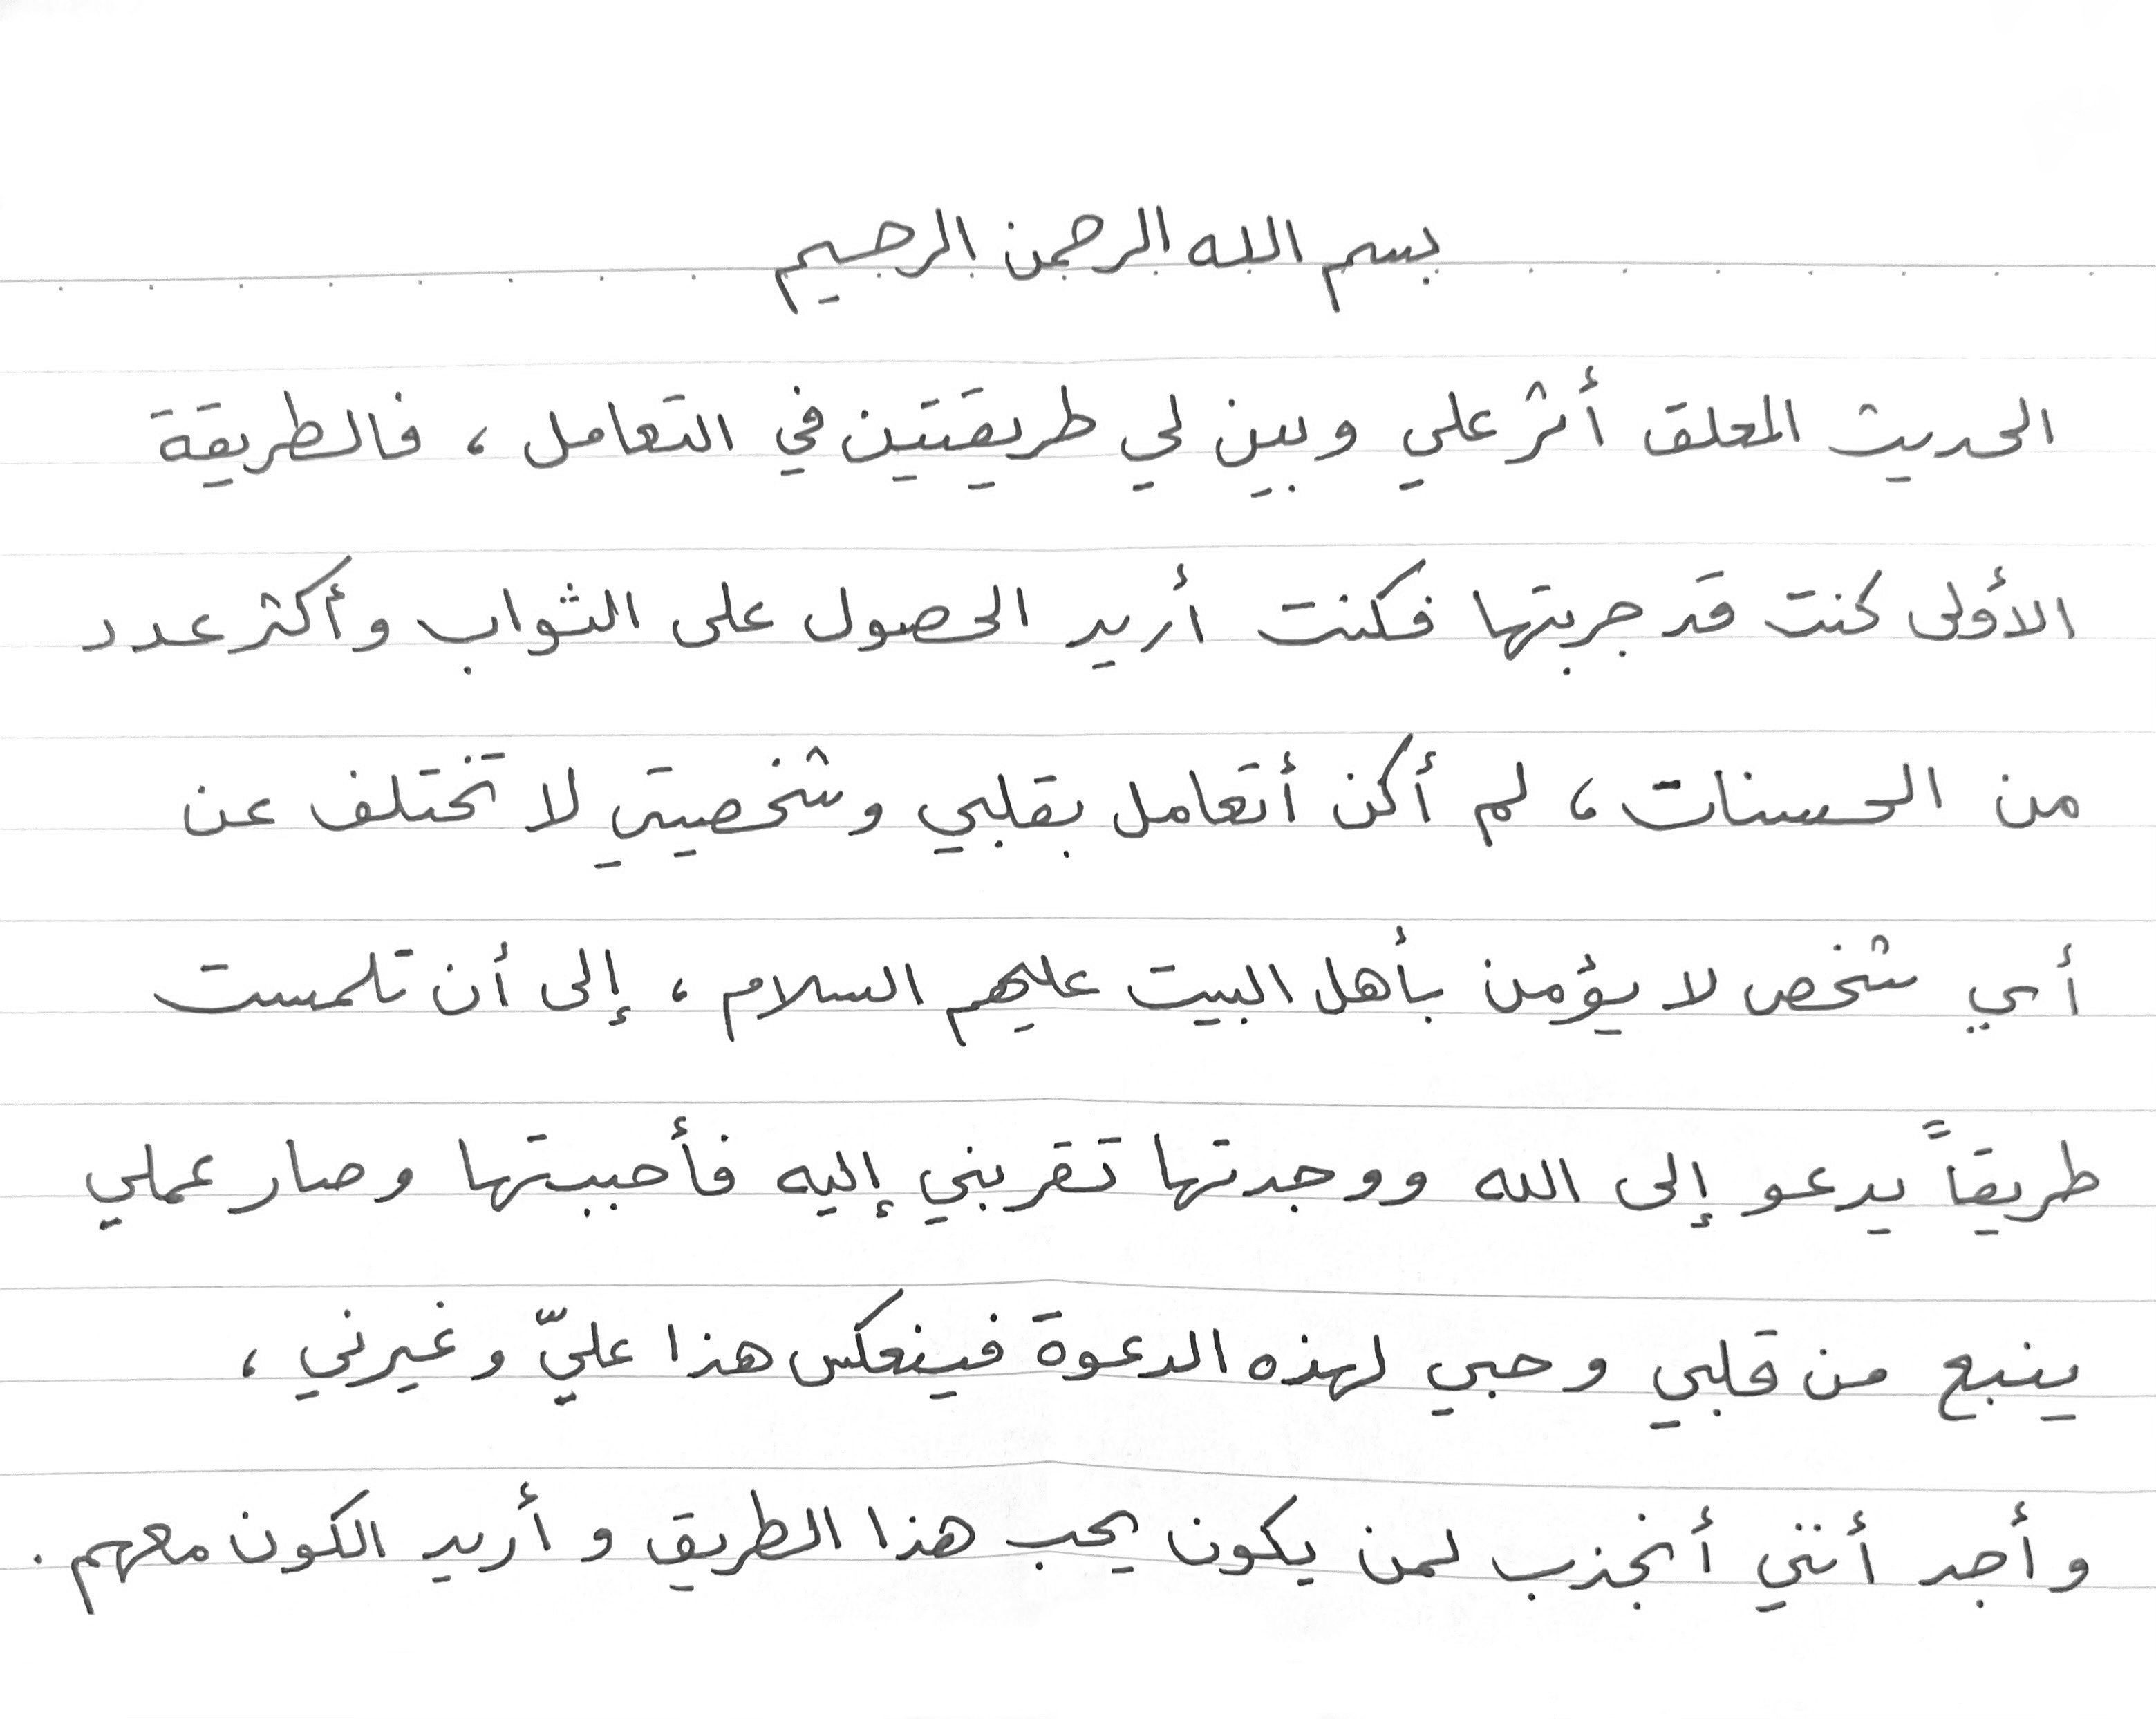 بسم الله الرحمن الرحيم
الحديث المعلق أثر علي وبين لي طريقتين في التعامل، فالطريقة
الأولى كنت قد جربتها فكنت أريد الحصول على الثواب وأكثر عدد
من الحسنات، لم أكن أتعامل بقلبي وشخصيتي لا تختلف عن
أي شخص لا يؤمن بأهل البيت عليهم السلام، إلى أن تلمست
طريقاً يدعو إلى الله ووجدتها تقربني إليه فأحببتها وصار عملي
ينبع من قلبي وحبي لهذه الدعوة فينعكس هذا عليّ وغيرني،
وأجد أنني أنجذب لمن يكون يحب هذا الطريق وأريد الكون معهم.